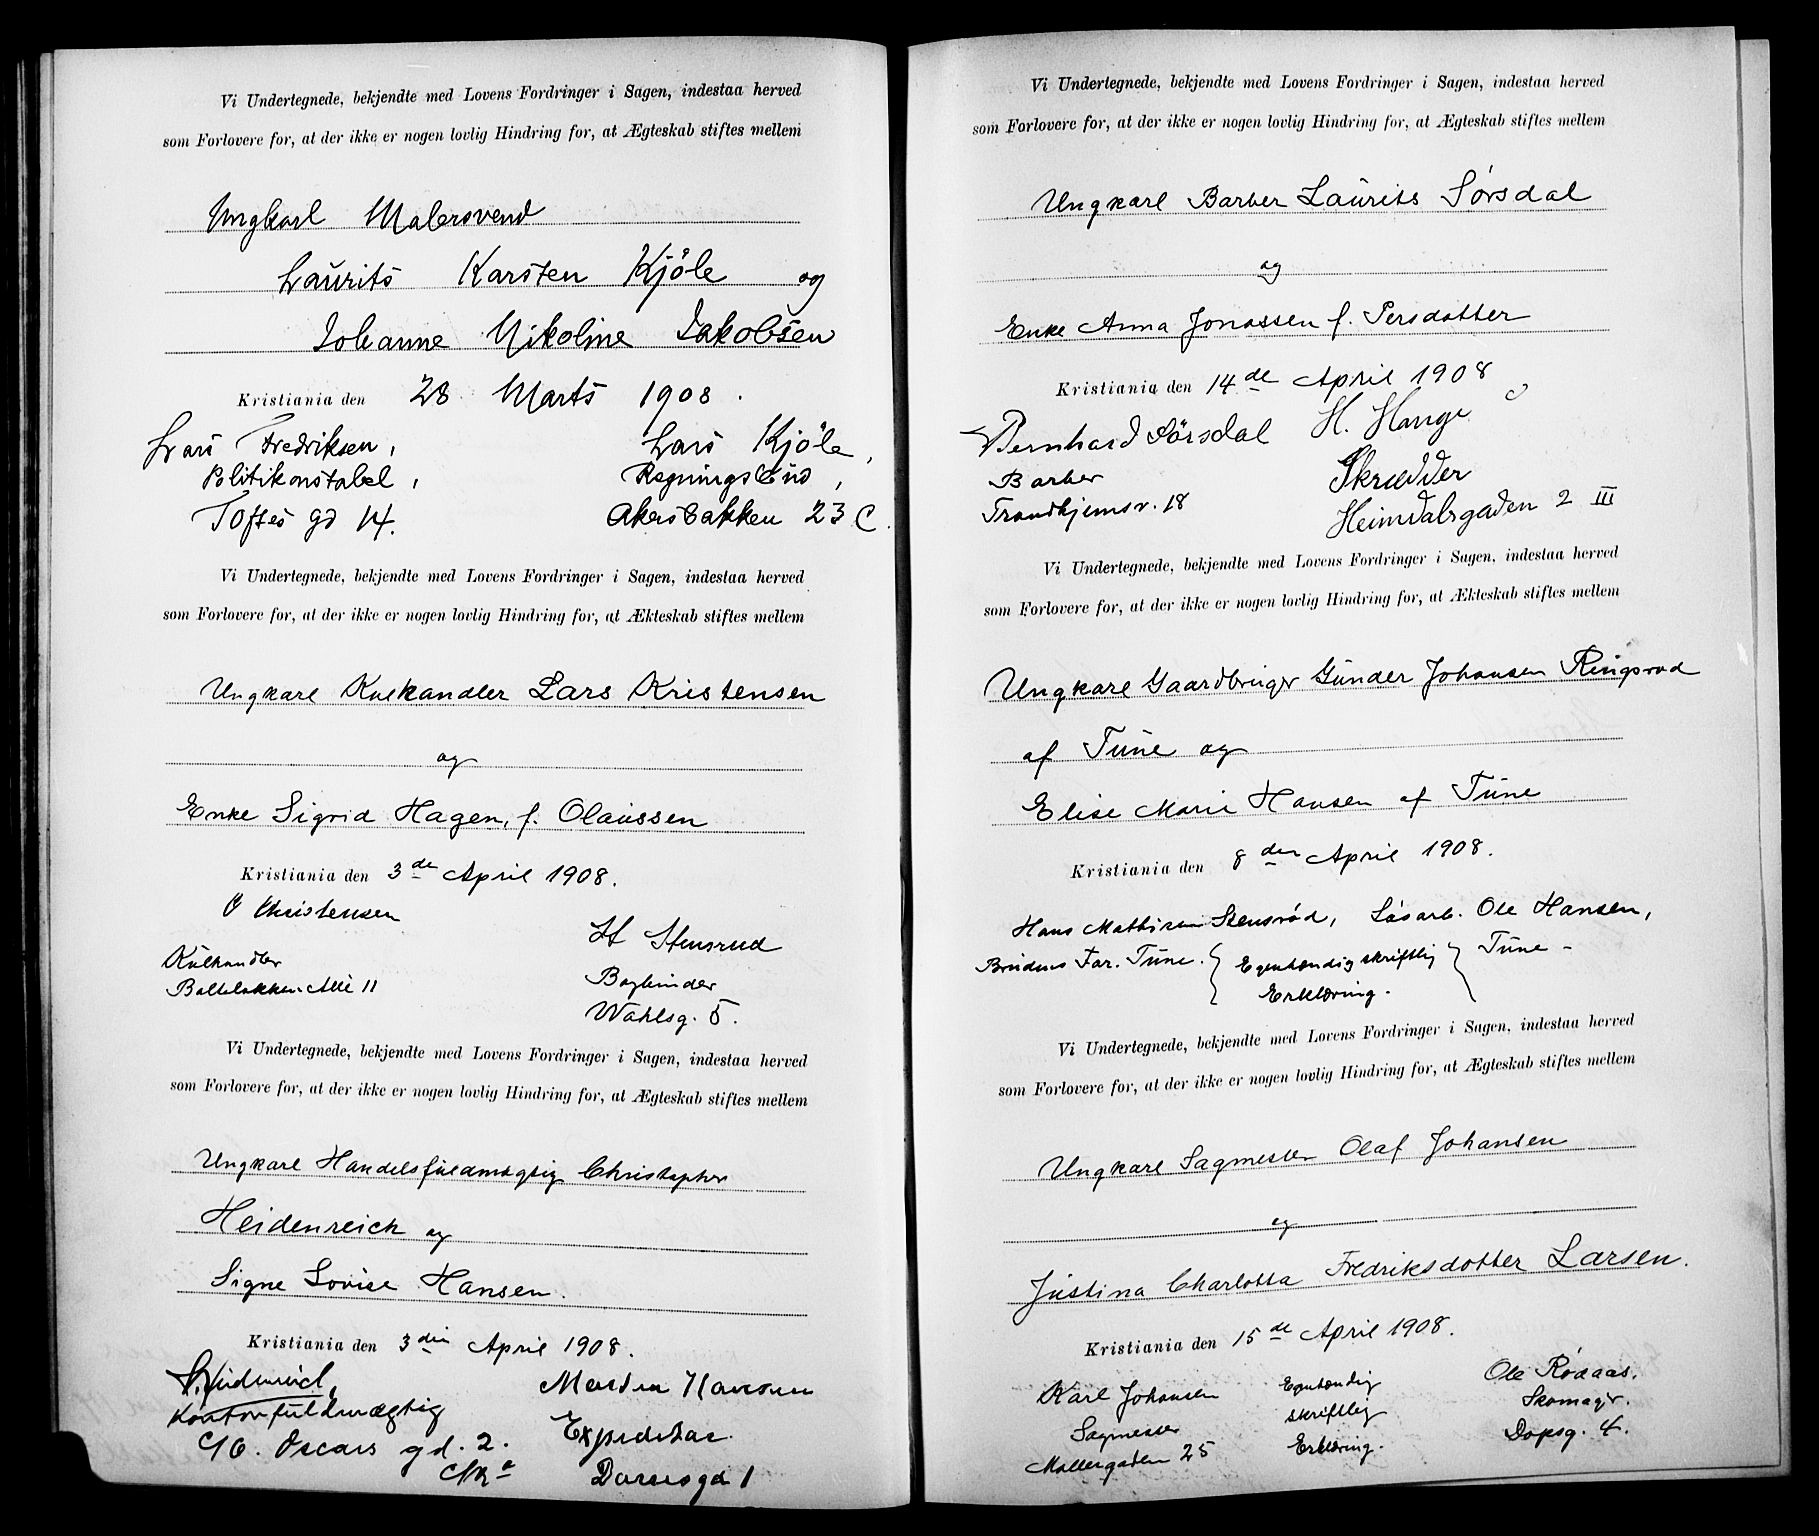 Vi Undertegnede, bekjendte med Lovens Fordringer i Sagen, indestaa herved
som Forlovere for, at der ikke er nogen lovlig Hindring for, at Ægteskab stiftes mellem
Ungkarl Malersvend
Laurits Karsten Kjöle og
Johanne Nikoline Jakobsen
Kristiania den 28 Marts 1908.
Lars Fredriksen,
Politikonstabel,
Toftes gd 14.
Lars Kjöle,
Regningsbud,
Akersbakken 23 C.
Vi Undertegnede, bekjendte med Lovens Fordringer i Sagen, indestaa herved
som Forlovere for, at der ikke er nogen lovlig Hindring for, at Ækteskab stiftes mellem
Ungkarl Kulhandler Lars Kristensen
og
Enke Sigrid Hagen, f. Olaussen
Kristiania den 3de April 1908.
Christensen
Kulhandler
Alle 11
H Stensrud
Bogbinder
Wahlsg. 5.
Vi Undertegnede, bekjendte med Lovens Fordringer i Sagen, indestaa herved
som Forlovere for, at der ikke er nogen lovlig Hindring for, at Ægteskab stiftes mellem
Ungkarl Handelsfuldmægtig Christopher
Heidenreich og
Signe Lovise Hansen.
Kristiania den 3die April 1908.
Heidenreich,
Kontorfuldmægtig
Oscars gd. 2.
Martin Hansen
Expeditør
1
Vi Undertegnede, bekjendte med Lovens Fordringer i Sagen, indestaa herved
som Forlovere for, at der ikke er nogen lovlig Hindring for, at Ægteskab stiftes mellem
Ungkarl Barber Laurits Sørsdal
og
Enke Anna Jonassen f. Persdatter
Kristiania den 14de April 1908
Bernhard Sörsdal
Barber
Trondhjemsv. 18
H. Hauge
Skrædder
Heimdalsgaden 2 III
Vi Undertegnede, bekjendte med Lovens Fordringer i Sagen, indestaa herved
som Forlovere for, at der ikke er nogen lovlig Hindring for, at Ækteskab stiftes mellem
Ungkarl Gaardbruger Gunder Johansen Ringsrød
af Tune og
Elise Marie Hansen af Tune
Kristiania den 8de April 1908.
Hans Mathisen Stensrød, Løsarb. Ole Hansen,
Brudens Far. Tune. Egenhændig skriftlig Tune -
Erklæring.
Vi Undertegnede, bekjendte med Lovens Fordringer i Sagen, indestaa herved
som Forlovere for, at der ikke er nogen lovlig Hindring for, at Ægteskab stiftes mellem
Ungkarl Sagmester Olaf Johansen
og
Justina Charlotta Fredriksdotter Larsen.
Kristiania den 15de April 1908.
Karl Johansen
Sagmester
Møllergaden 25
Egenhændig
skriftlig
Erklæring.
Ole Rødaas.
Skomager.
Dopsg. 4.